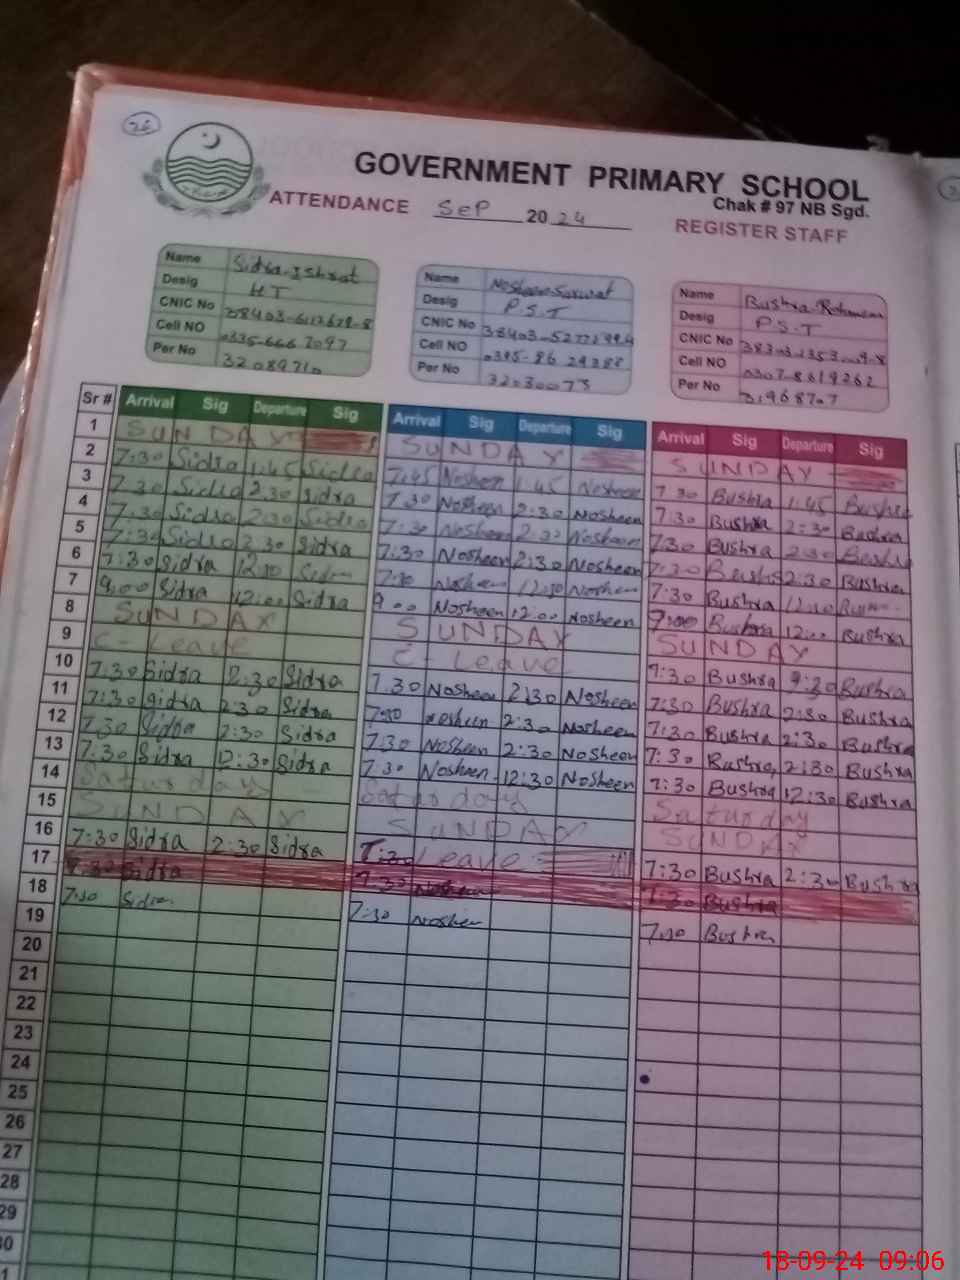 26
GOVERNMENT PRIMARY SCHOOL
Chak # 97 NB Sgd.
ATTENDANCE Sep 2024 REGISTER STAFF
Name Sidra Ishrat Name Nosheen Name Bushra
Desig HT Desig P.S.T Desig P.S.T
CNIC No CNIC No CNIC No
Cell NO Cell NO Cell NO
Per No Per No Per No
Sr # Arrival Sig Departure Sig Arrival Sig Departure Sig Arrival Sig Departure Sig
1 SUNDAY SUNDAY SUNDAY
2 7:30 Sidra 1:45 Sidra 7:45 Nosheen 1:45 Nosheen 7:30 Bushra 1:45 Bushra
3 7:30 Sidra 2:30 Sidra 7:30 Nosheen 2:30 Nosheen 7:30 Bushra 2:30 Bushra
4 7:30 Sidra 2:30 Sidra 7:30 Nosheen 2:30 Nosheen 7:30 Bushra 2:30 Bushra
5 7:30 Sidra 2:30 Sidra 7:30 Nosheen 2:30 Nosheen 7:30 Bushra 2:30 Bushra
6 7:30 Sidra Sidra 7:30 Nosheen Nosheen 7:30 Bushra
7 9:00 Sidra 12:00 Sidra 9:00 Nosheen 12:00 Nosheen 9:00 Bushra 12:00 Bushra
8 SUNDAY SUNDAY SUNDAY
9 C-Leave C-Leave 7:30 Bushra Bushra
10 7:30 Sidra 2:30 Sidra 7:30 Nosheen 2:30 Nosheen 7:30 Bushra 2:30 Bushra
11 7:30 Sidra 2:30 Sidra 7:30 Nosheen 2:30 Nosheen 7:30 Bushra 2:30 Bushra
12 7:30 Sidra 2:30 Sidra 7:30 Nosheen 2:30 Nosheen 7:30 Bushra 2:30 Bushra
13 7:30 Sidra 12:30 Sidra 7:30 Nosheen 12:30 Nosheen 7:30 Bushra 12:30 Bushra
14 Saturday Saturday Saturday
15 SUNDAY SUNDAY SUNDAY
16 7:30 Sidra 2:30 Sidra Leave 7:30 Bushra 2:30 Bushra
17 7:30 Sidra 7:30 Nosheen 7:30 Bushra
18 7:30 Sidra 7:30 Nosheen 7:30 Bushra
19
20
21
22
23
24
25
26
27
28
29
30
18-09-24 09:06